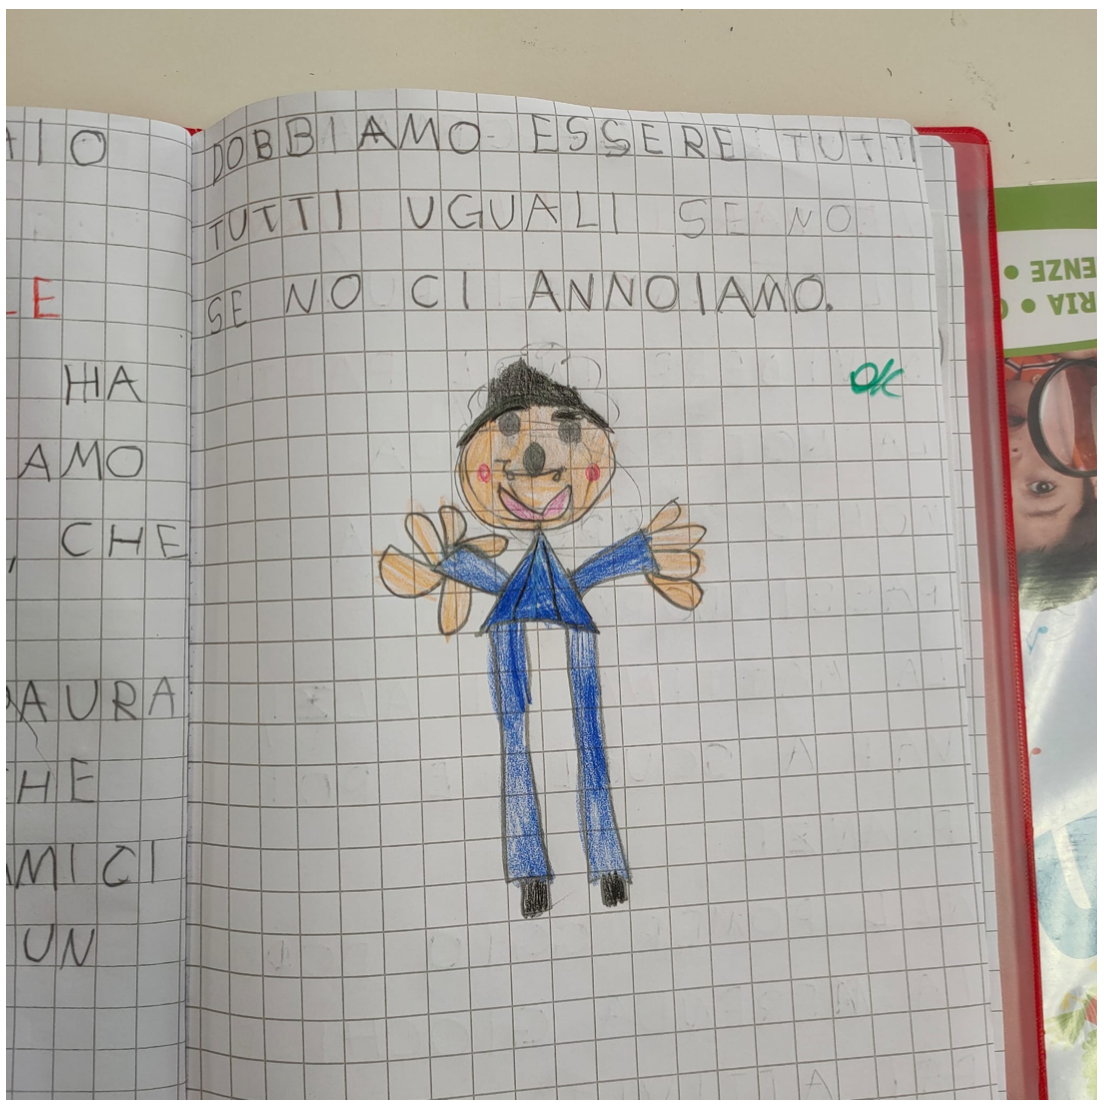 IO
LE
HA
AMO
, CHE
PAURA
CHE
AMICI
UN
DOBBIAMO ESSERE TUTTI
TUTTI UGUALI SE NO
SE NO CI ANNOIAMO.
OK
ENZE •
RIA •